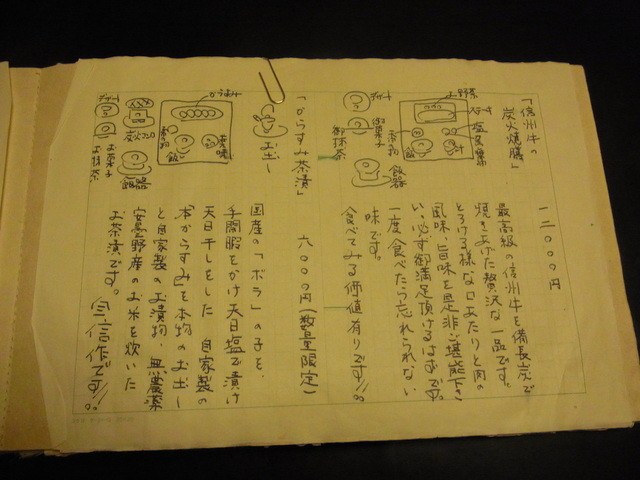 「信州牛の
炭火焼膳」
一二〇〇〇円
最高級の信州牛を備長炭で
焼きあげた贅沢な一品です。
とろける様な口あたりと肉の
風味、旨味を是非ご堪能下さ
い。必ず御満足頂けるはずです。
一度食べたら忘れられない
味です。
食べてみる価値有りです!!
デザート
御抹茶
お菓子
お野菜
飯器
「からすみ茶漬」
六〇〇〇円（数量限定）
国産の「ボラ」の子を、
手間暇をかけ天日塩で漬け
天日干しをした自家製の
「本からすみ」を本物のお出し
と自家製のお漬物、無農薬
安曇野産のお米を炊いた
お茶漬です。
自信作です!!
お出し
からすみ
薬味
飯
デザート
お菓子
お抹茶
飯器